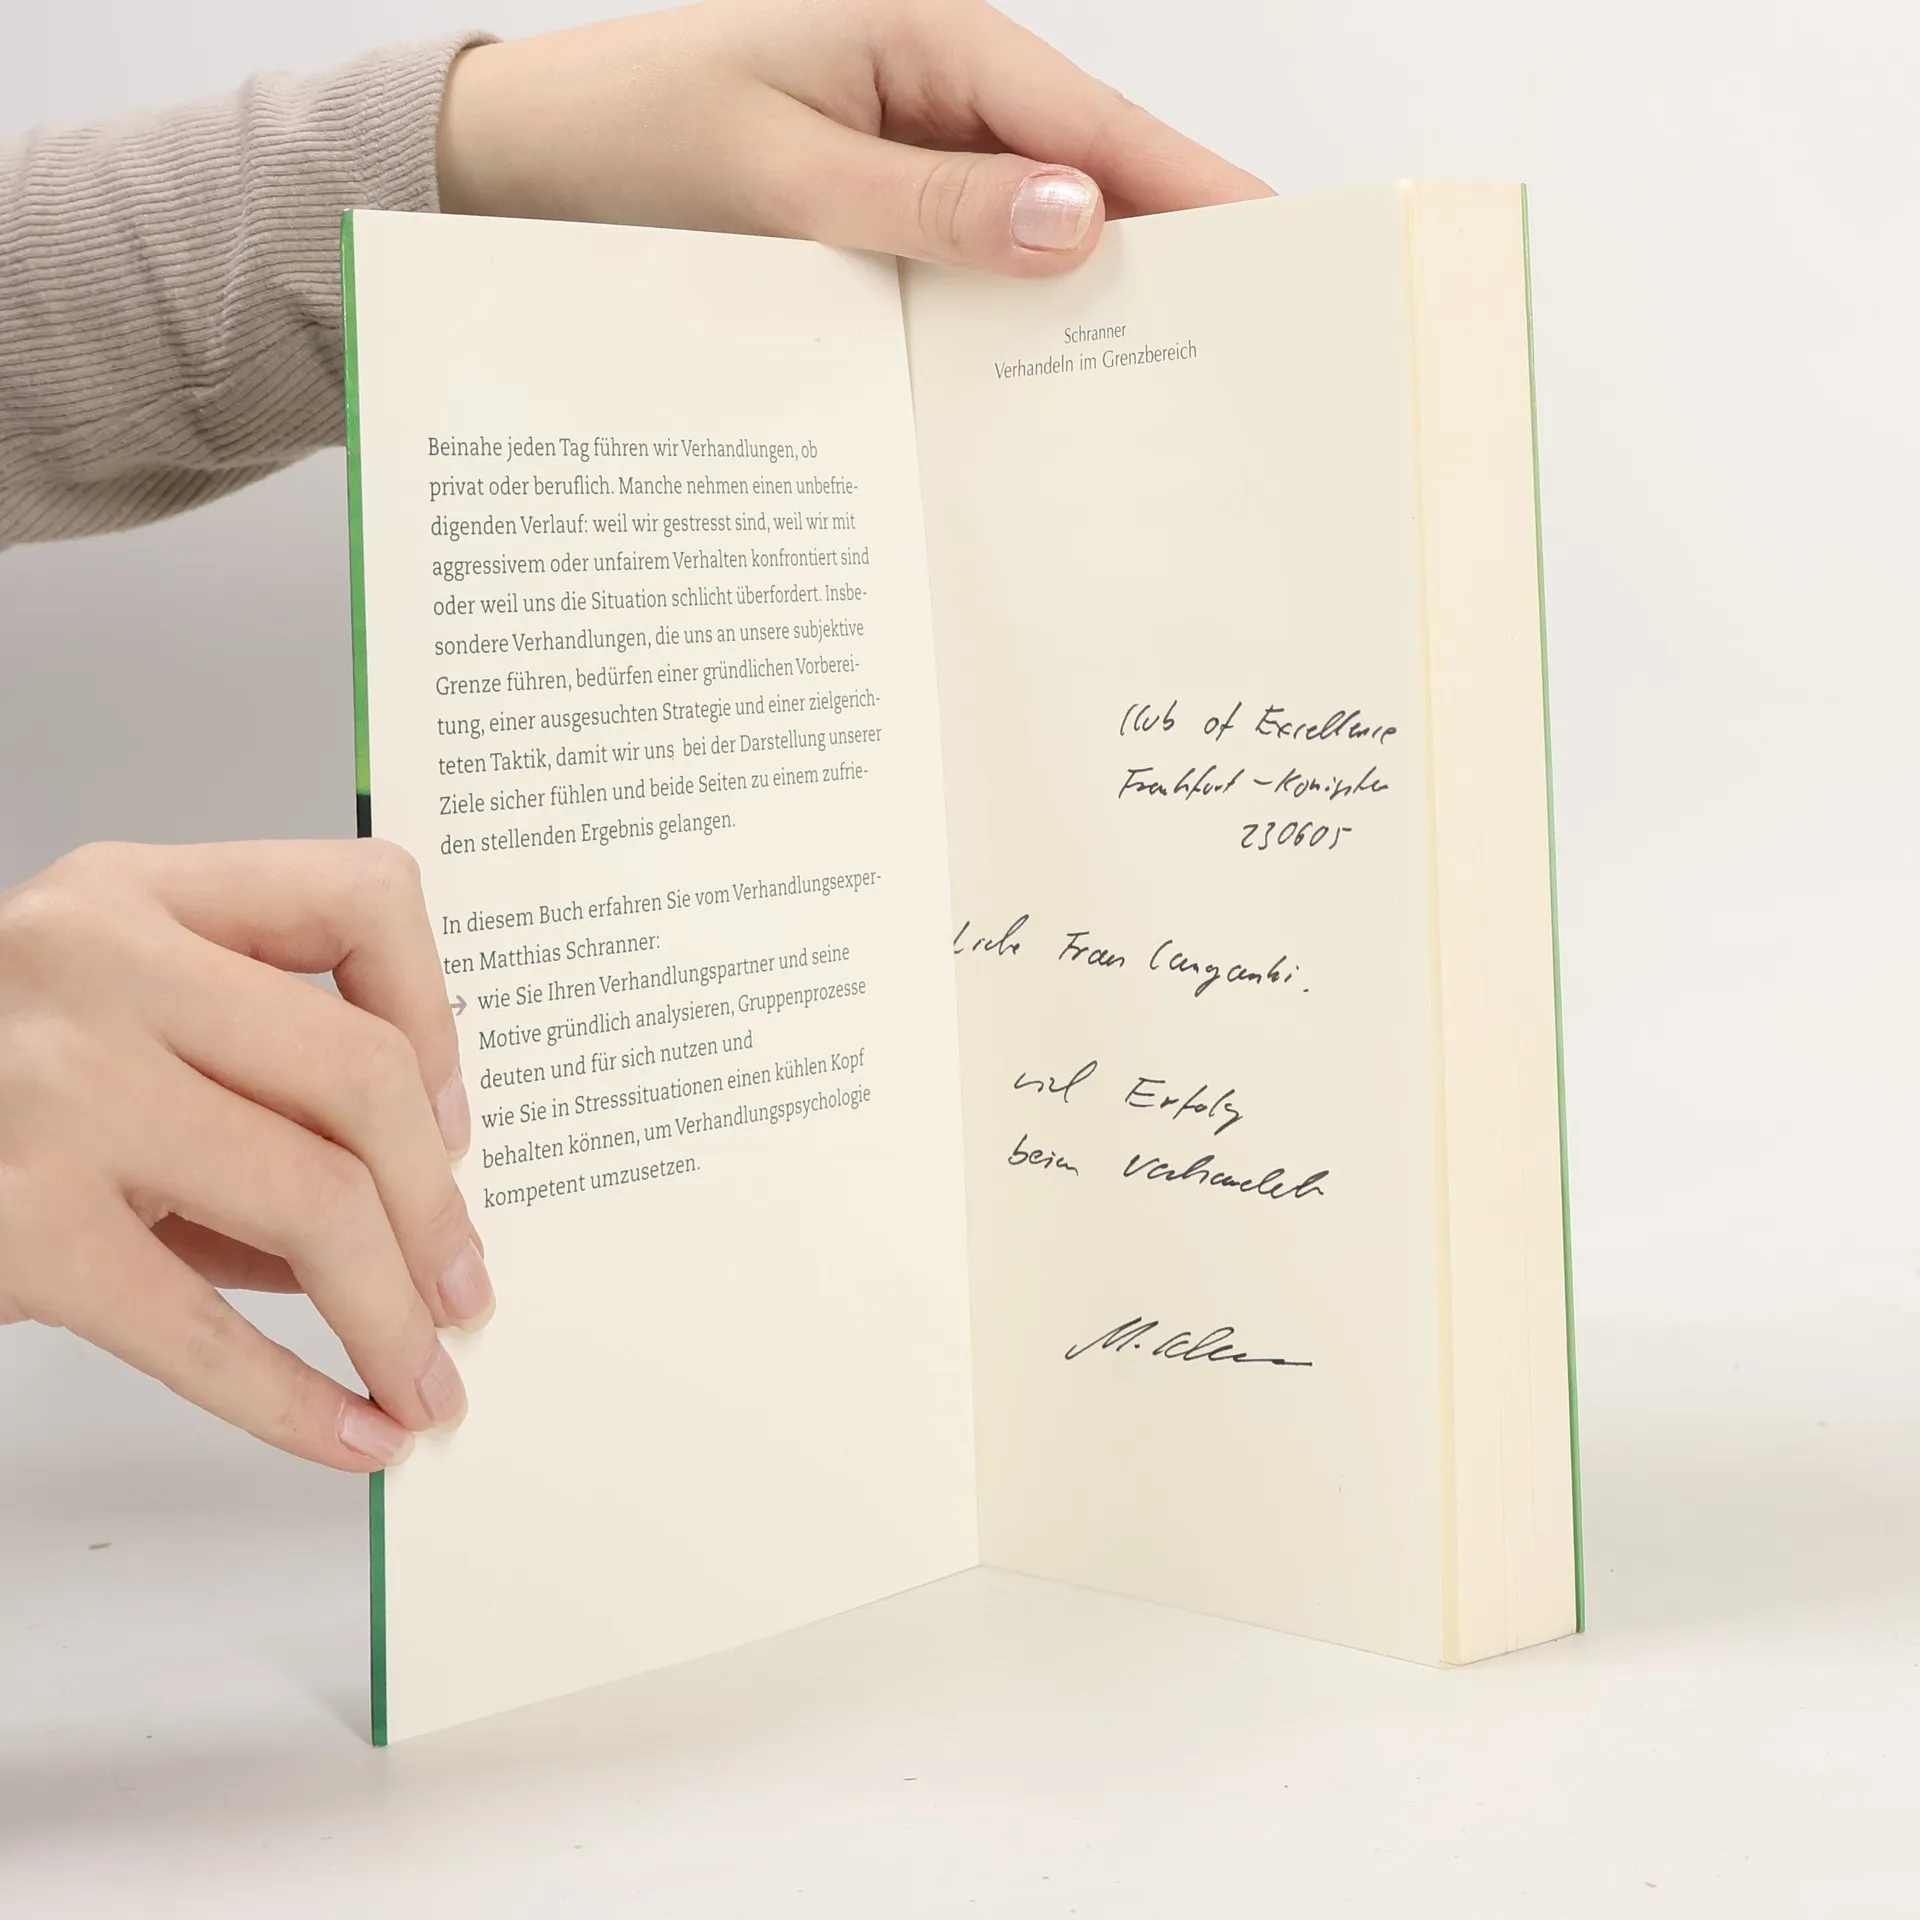 Beinahe jeden Tag führen wir Verhandlungen, ob
privat oder beruflich. Manche nehmen einen unbefrie-
digenden Verlauf: weil wir gestresst sind, weil wir mit
aggressivem oder unfairem Verhalten konfrontiert sind
oder weil uns die Situation schlicht überfordert. Insbe-
sondere Verhandlungen, die uns an unsere subjektive
Grenze führen, bedürfen einer gründlichen Vorberei-
tung, einer ausgesuchten Strategie und einer zielgerich-
teten Taktik, damit wir uns bei der Darstellung unserer
Ziele sicher fühlen und beide Seiten zu einem zufrie-
den stellenden Ergebnis gelangen.
In diesem Buch erfahren Sie vom Verhandlungsexper-
ten Matthias Schranner:
→ wie Sie Ihren Verhandlungspartner und seine
Motive gründlich analysieren, Gruppenprozesse
deuten und für sich nutzen und
wie Sie in Stresssituationen einen kühlen Kopf
behalten können, um Verhandlungspsychologie
kompetent umzusetzen.
Schranner
Verhandeln im Grenzbereich
Club of Excellence
Frankfurt –
230605
Liebe Frau
viel Erfolg
beim Verhandeln
M.